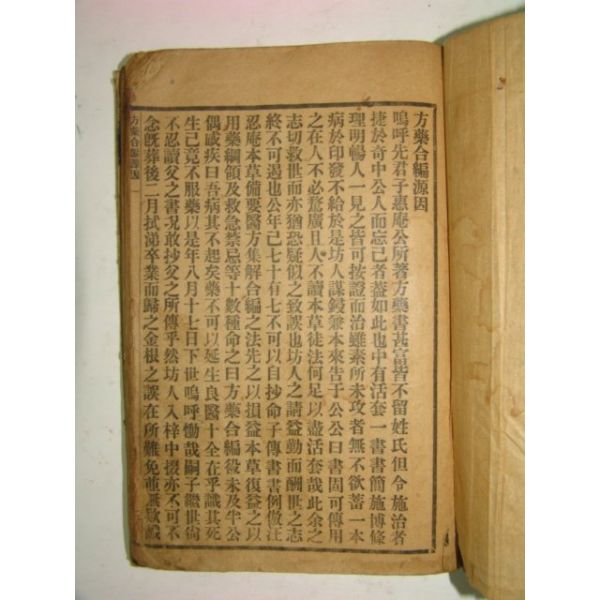 方藥合編源因
嗚呼先君子惠庵公所著方藥書甚富皆不留姓氏但令施治者
捷於奇中公人而忘己者蓋如此也中有活套一書書簡施博條
理明暢人一見之皆可按證而治雖素所未攻者無不欲蓄一本
病於印發不給於是坊人謀鋟兼本來告于公公曰書固可傳用
之在人不必騖廣且人不讀本草徒法何足以盡活套哉此余之
志切救世而亦猶恐疑似之致誤也坊人之請益勤而酬世之志
終不可遏也公年己七十有七不可以自抄命子傳書書例倣汪
忍庵本草備要醫方集解合編之法先之以損益本草復益之以
用藥綱領及救急禁忌等十數種命之曰方藥合編役未及半公
偶感疾曰吾病其不起矣藥不可以延生良醫十全在乎識其死
生己竟不服藥以是年八月十七日下世嗚呼慟哉嗣子繼世尙
不忍讀父之書況敢抄父之所傳乎然坊人入梓中掇亦不可不
念旣葬後二月拭涕卒業而歸之金根之誤在所難免董無欺
方藥合編源因
一